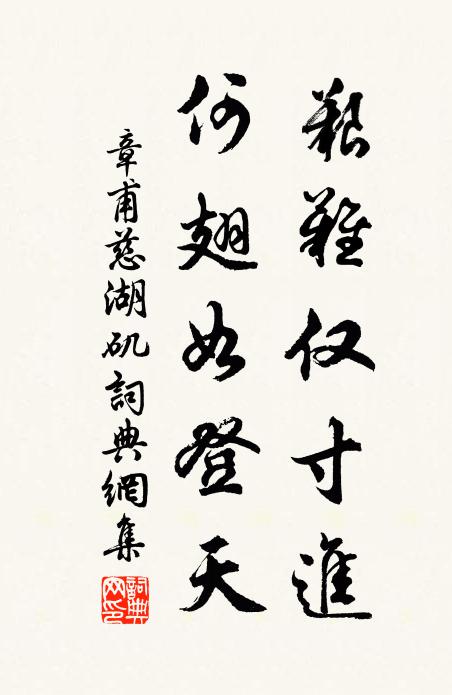 艱難仅寸進
何翅如登天
章甫慈湖矶詞典網集
詞典网印